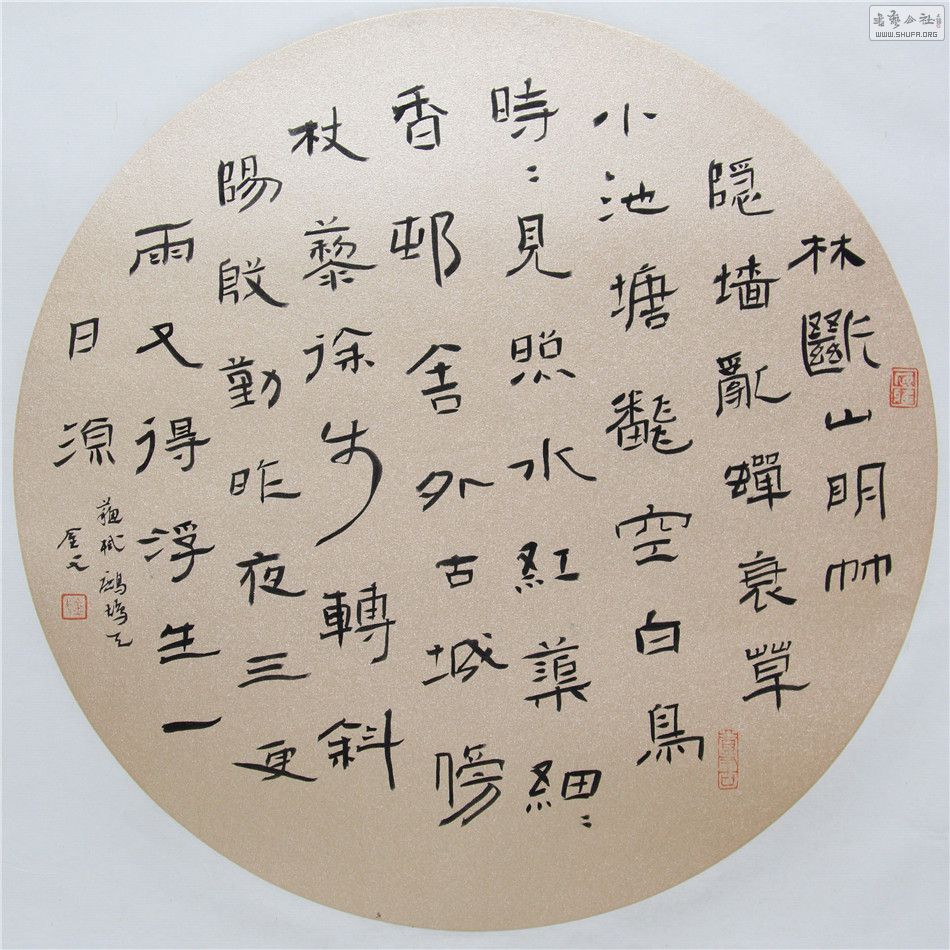 林斷山明竹
隐墙亂蟬衰草
小池塘飜空白鳥
時〻見照水紅蕖細〻
香邨舍外古城傍
杖藜徐步轉斜
陽殷勤昨夜三更
雨又得浮生一
日凉
蘇軾鷓鴣天
書藝公社
WWW.SHUFA.ORG